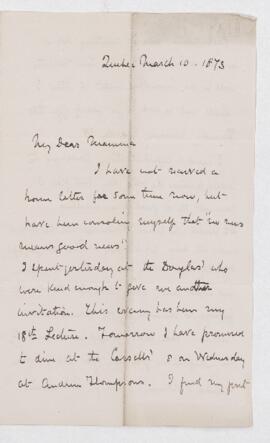 Quebec March 10. 1873
My Dear Mamma
I have not received a
home letter for some time now, but
have been consoling myself that "no news
means good news".
I spent yesterday at the Douglas' who
were kind enough to give me another
invitation. This evening has been my
18th Lecture. Tomorrow I have promised
to dine at the Cassells' & on Wednesday
at Andrew Thompsons. I find my